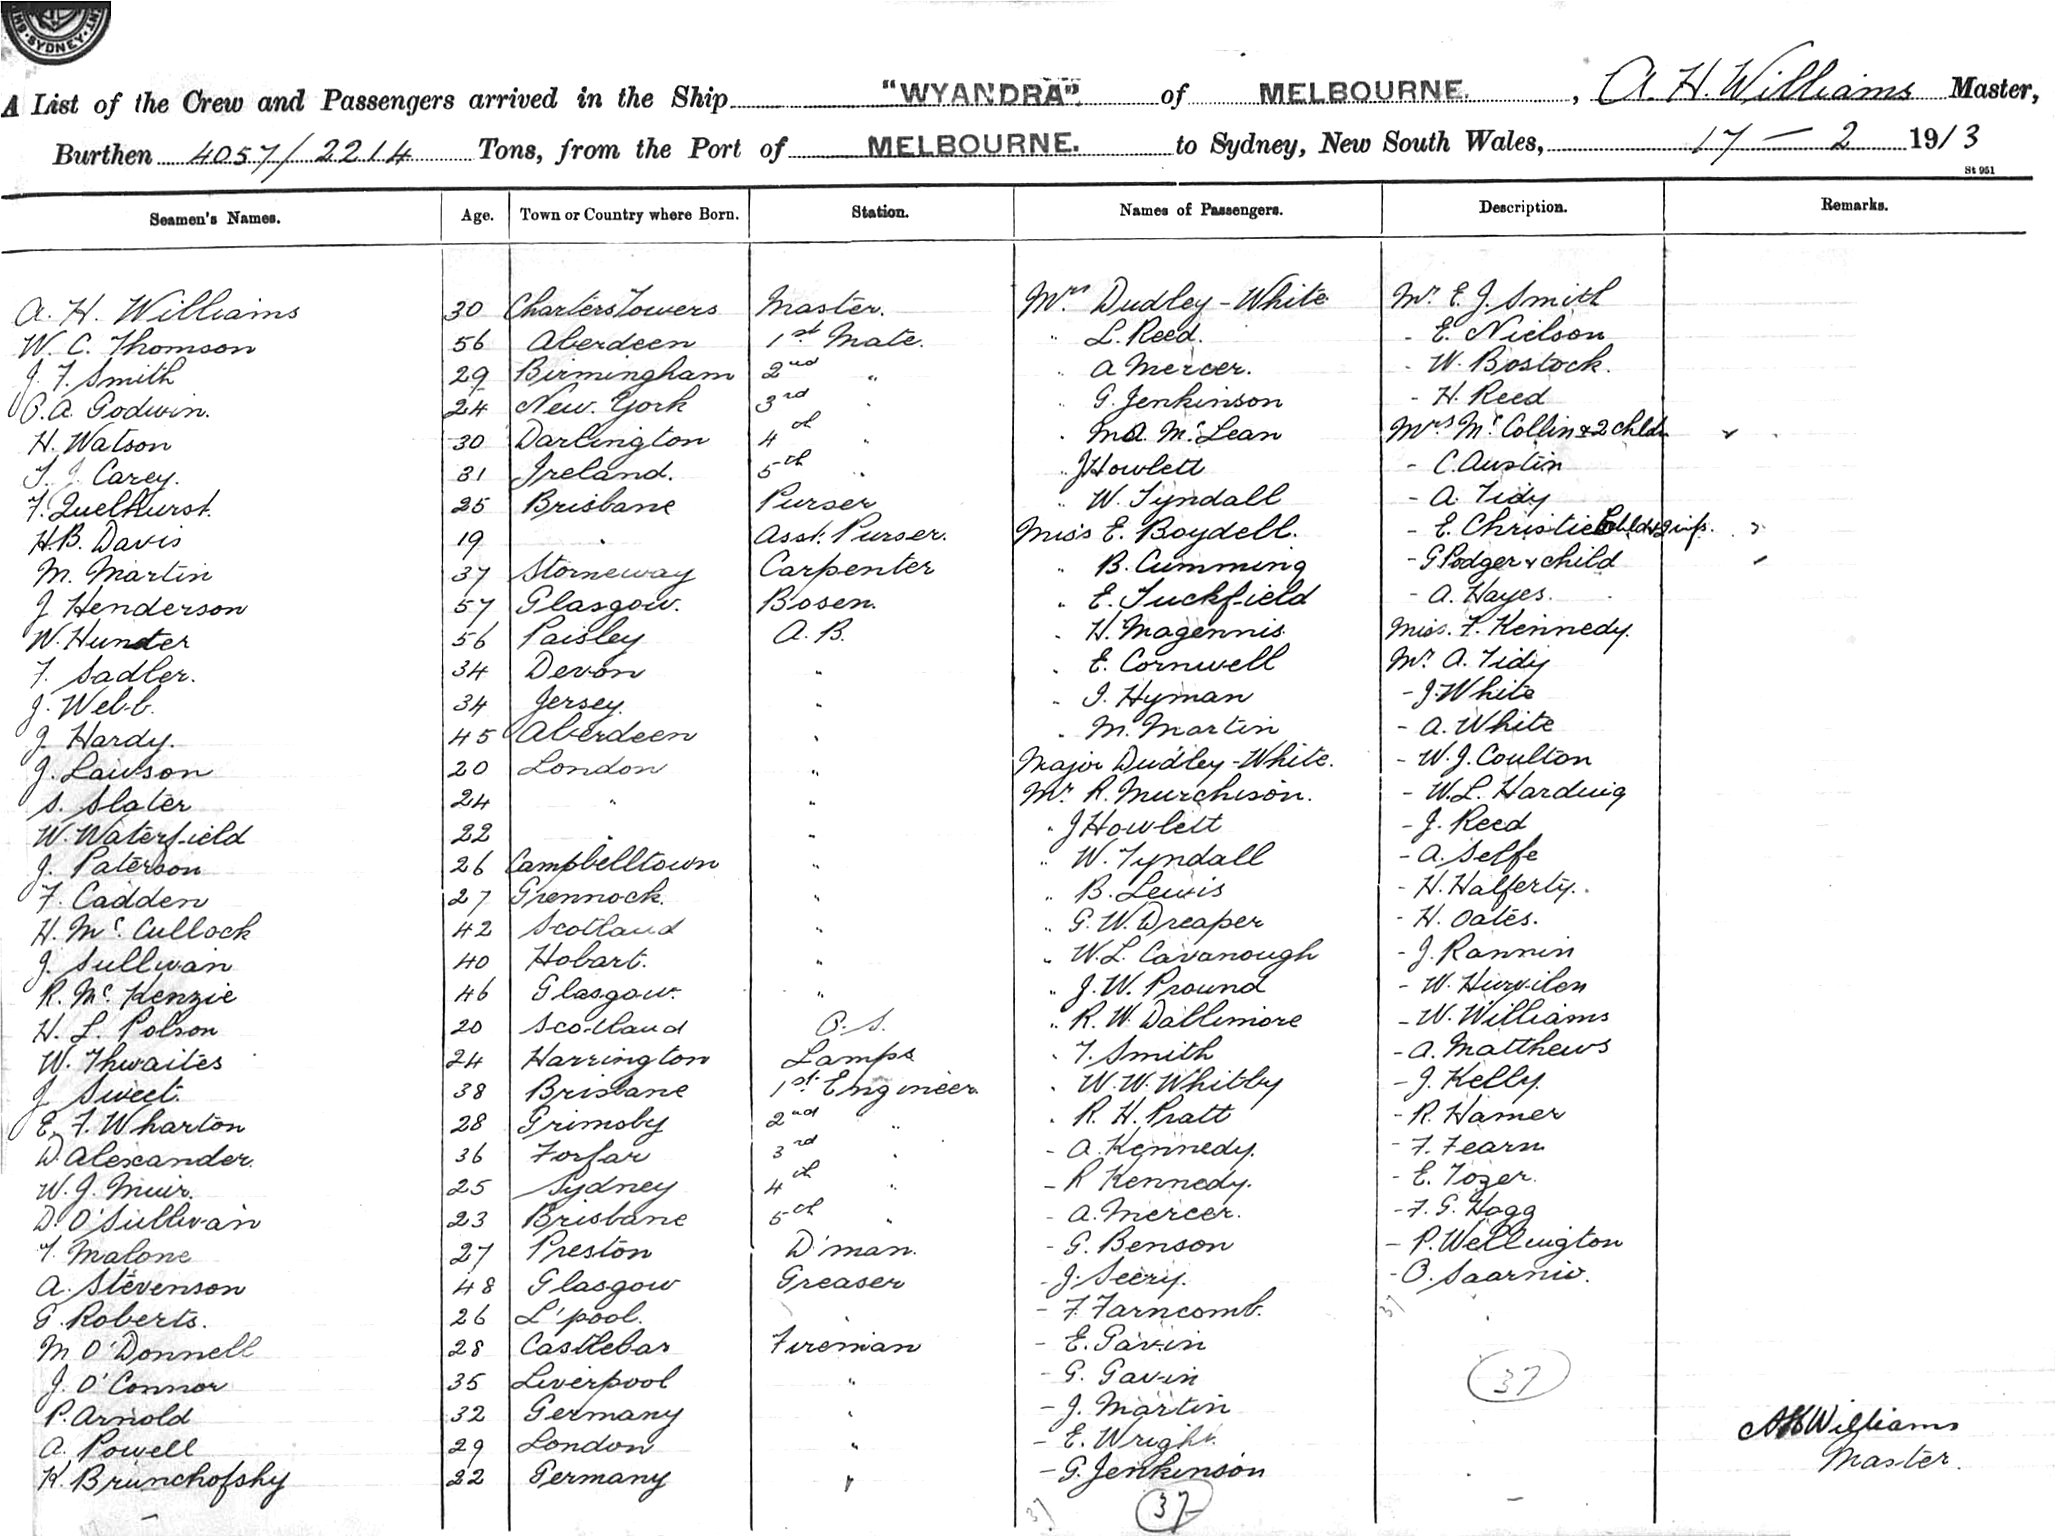 SYDNEY
A List of the Crew and Passengers arrived in the Ship "WYANDRA" of MELBOURNE. , A. H. Williams Master,
Burthen 4057/2214 Tons, from the Port of MELBOURNE. to Sydney, New South Wales, 17 - 2 1913
St 951
Seamen's Names. Age. Town or Country where Born. Station. Names of Passengers. Description. Remarks.
A. H. Williams 30 Charters Towers Master. Mrs Dudley-White Mr. E. J. Smith
W. C. Thomson 56 Aberdeen 1st Mate. " L. Reed. - E. Nielson
J. F. Smith 29 Birmingham 2nd " " A Mercer. - W. Bostock.
P. A. Godwin. 24 New. York 3rd " " G. Jenkinson - H. Reed
H. Watson 30 Darlington 4th " " McLean Mrs McCollin & 2 chldn
T. J. Carey. 31 Ireland. 5th " " J Howlett - C. Austin
F. Quelhurst. 25 Brisbane Purser " W. Tyndall - A. Tidy
H. B. Davis 19 " Asst. Purser. Miss E. Boydell. - E. Christie
M. Martin 37 Storneway Carpenter " B. Cumming - G Podger & child
J Henderson 57 Glasgow. Bosen. " E. Tuckfield - A. Hayes.
W. Hunter 56 Paisley A. B. " H. Magennis Miss. F. Kennedy.
F. Sadler. 34 Devon " " E. Cornwell Mr. A. Tidy
J. Webb. 34 Jersey. " " I. Hyman - J. White
J. Hardy. 45 Aberdeen " " M. Martin - A. White
J. Lawson 20 London " Major Dudley-White. - W. J. Coulton
S. Slater 24 " " Mr. R. Murchison. - W. L. Harding
W. Waterfield 22 " " " J Howlett - J. Reed
J. Paterson 26 Campbelltown " " W. Tyndall - A. Selfe
F. Cadden 27 Grennock. " " B. Lewis - H. Halferty.
H. McCullock 42 Scotland " " G. W. Dreaper - H. Oates.
J. Sullivan 40 Hobart. " " W. L. Cavanough - J. Rannin
R. McKenzie 46 Glasgow. " " J. W. Pround - W.
H. L. Polson 20 Scotland O. S. " R. W. Dallimore - W. Williams
W. Thwaites 24 Harrington Lamps " T. Smith - A. Matthews
J Sweet. 38 Brisbane 1st Engineer " W. W. Whitby - J. Kelly.
E. F. Wharton 28 Grimsby 2nd " " R. H. Pratt - R. Hamer
D. Alexander. 36 Forfar 3rd " - A. Kennedy. - F. Fearn
W. J. Muir. 25 Sydney 4th " - R Kennedy. - E. Tozer.
D. O'Sullivan 23 Brisbane 5th " - A. Mercer. - F. G. Hogg
T. Malone 27 Preston D'man. - G. Benson - P. Wellington
A. Stevenson 48 Glasgow Greaser - J. Seery. - O. Saarniv.
G. Roberts. 26 L'pool. " - F. Farncomb. 37
M O'Donnell 28 Castlebar Fireman - E. Gavin
J. O'Connor 35 Liverpool " - G. Gavin 37
P. Arnold 32 Germany " - J. Martin AH Williams
A. Powell 29 London " - E. Wright. Master.
K. Brunchofsky 22 Germany " - G. Jenkinson
37 37